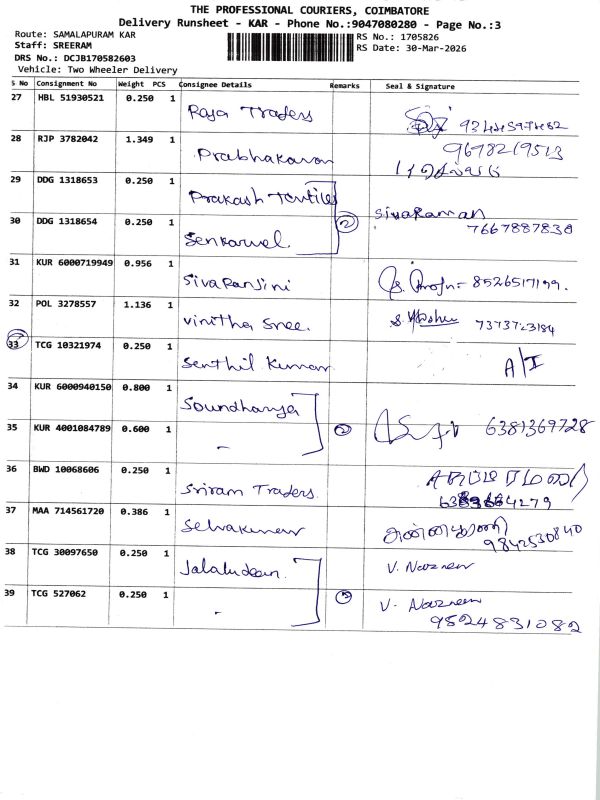 THE PROFESSIONAL COURIERS, COIMBATORE
Delivery Runsheet - KAR - Phone No.:9047080280 - Page No.:3
Route: SAMALAPURAM KAR
RS No.: 1705826
Staff: SREERAM
RS Date: 30-Mar-2026
DRS No.: DCJB170582603
Vehicle: Two Wheeler Delivery
S No Consignment No Weight PCS Consignee Details Remarks Seal & Signature
27 HBL 51930521 0.250 1 Raja Traders
28 RJP 3782042 1.349 1 Prabhakaran 9678219513
29 DDG 1318653 0.250 1 Prakash Textiles
30 DDG 1318654 0.250 1 Senkarvel 2 Sivaraman 7667887838
31 KUR 6000719949 0.956 1 Sivaranjini 8526517199.
32 POL 3278557 1.136 1 Vinitha Sree. 7373723184
33 TCG 10321974 0.250 1 Senthil Kumar A/I
34 KUR 6000940150 0.800 1 Soundharya
35 KUR 4001084789 0.600 1 - 2 6381369728
36 BWD 10068606 0.250 1 Sriram Traders
37 MAA 714561720 0.386 1 Selvakumar 9842530840
38 TCG 30097650 0.250 1 Jalaludeen. V. Nazreen
39 TCG 527062 0.250 1 - 2 V. Nazreen
9524831082